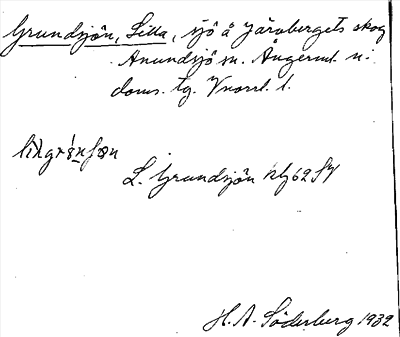 Grundsjön, Lilla, sjö å Järvbergets skog
Anundsjö sn. Ångerml. n:
doms. tg. Vnorrl. l.
L. Grundsjön
H. A. Söderberg 1932